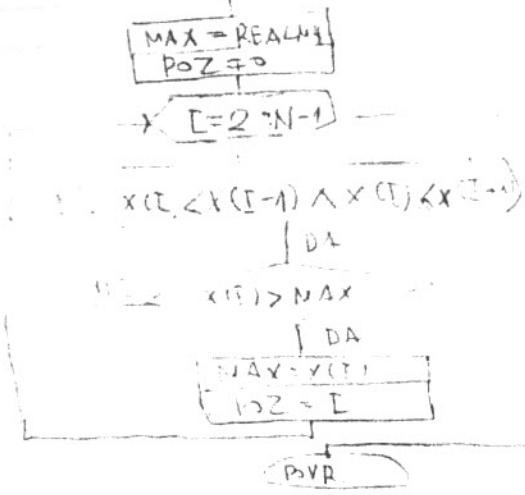 MAX = REALN1
POZ = 0
I=2 : N-1
X(I) < X(I-1) ∧ X(I) < X(I+1)
DA
X(I) > MAX
DA
MAX = X(I)
POZ = I